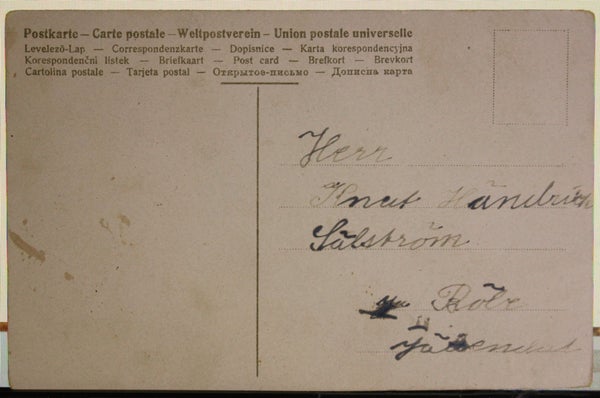 Postkarte — Carte postale — Weltpostverein — Union postale universelle
Levelező-Lap — Correspondenzkarte — Dopisnice — Karta korespondencyjna
Korespondenční lístek — Briefkaart — Post card — Brefkort — Brevkort
Cartolina postale — Tarjeta postal — Открытое-письмо — Дописна карта
Herr
Knut Händrick
Sälström
Röle